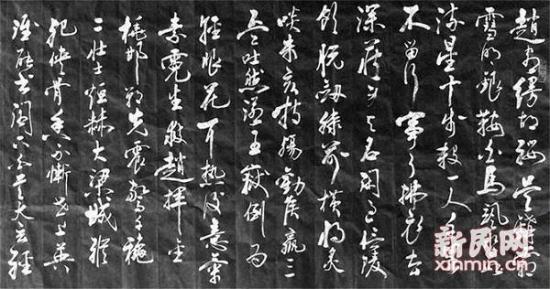 趙客縵胡纓吳鉤霜
雪明銀鞍白馬颯沓
流星十步殺一人千
不留行事了拂衣去
深藏身與名閑過信陵
飲脫劍膝前橫將炙
啖朱亥持觴勸侯嬴三
杯吐然諾五嶽倒為
輕眼花耳熱後意氣
素霓生救趙揮金
槌邯鄲先震驚千秋
二壯士烜赫大梁城縱
死俠骨香不慚世上英
誰能書閣下白首太玄經
新民网
xinmin.cn